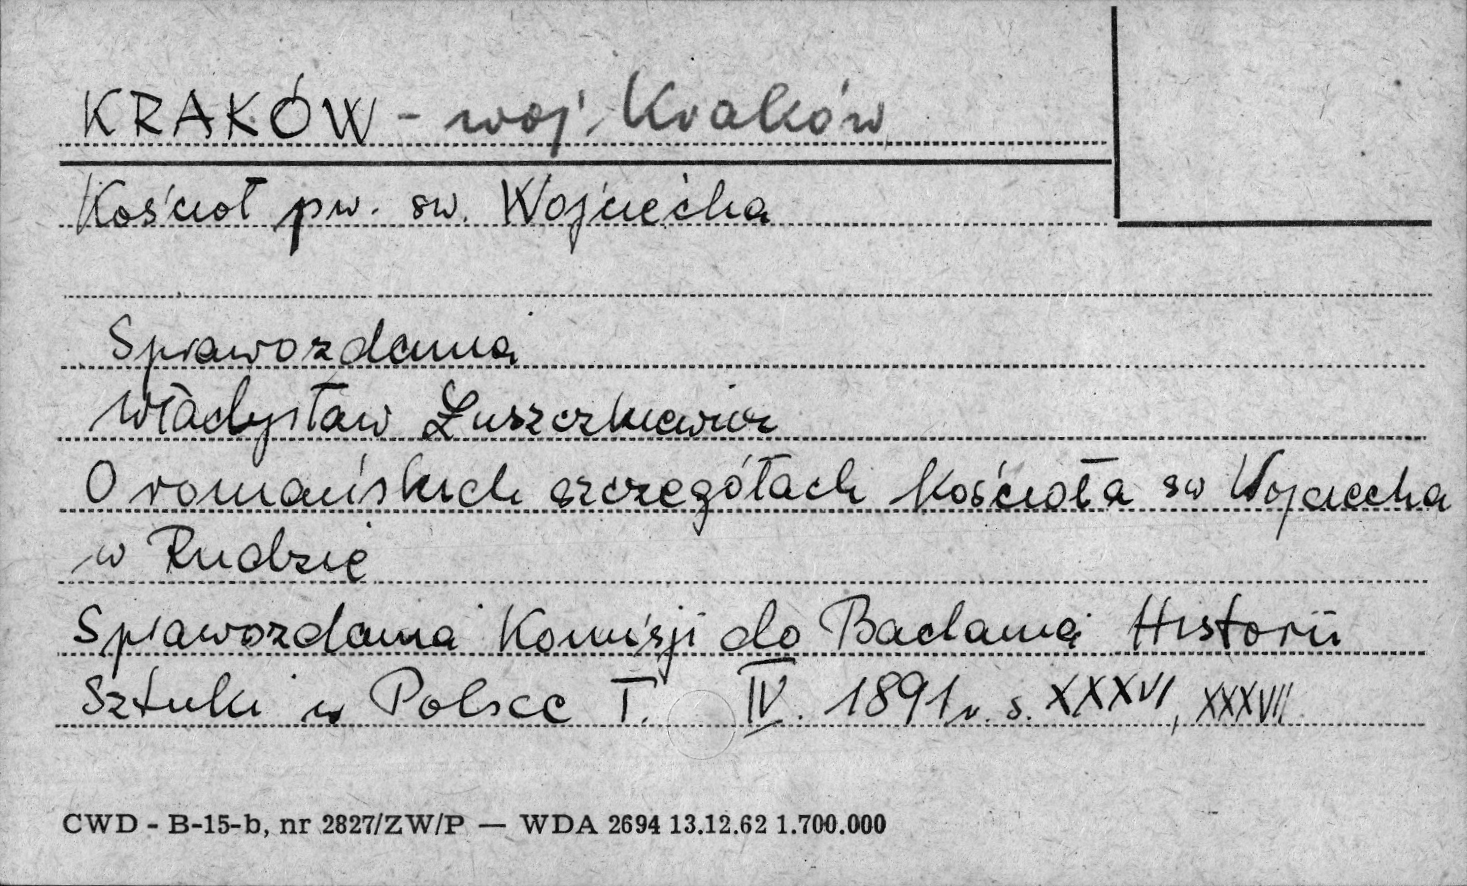 KRAKÓW - woj. Kraków
Kościoł pw. sw. Wojciecha
Sprawozdania
Władysław Łuszczkiewicz
O romańskich szczegółach Kościoła sw Wojciecha
w Rudzie
Sprawozdania Komisji do Badania Historii
Sztuki w Polsce T. IV. 1891 r. s. XXXVI, XXXVII
CWD - B-15-b, nr 2827/ZW/P — WDA 2694 13.12.62 1.700.000